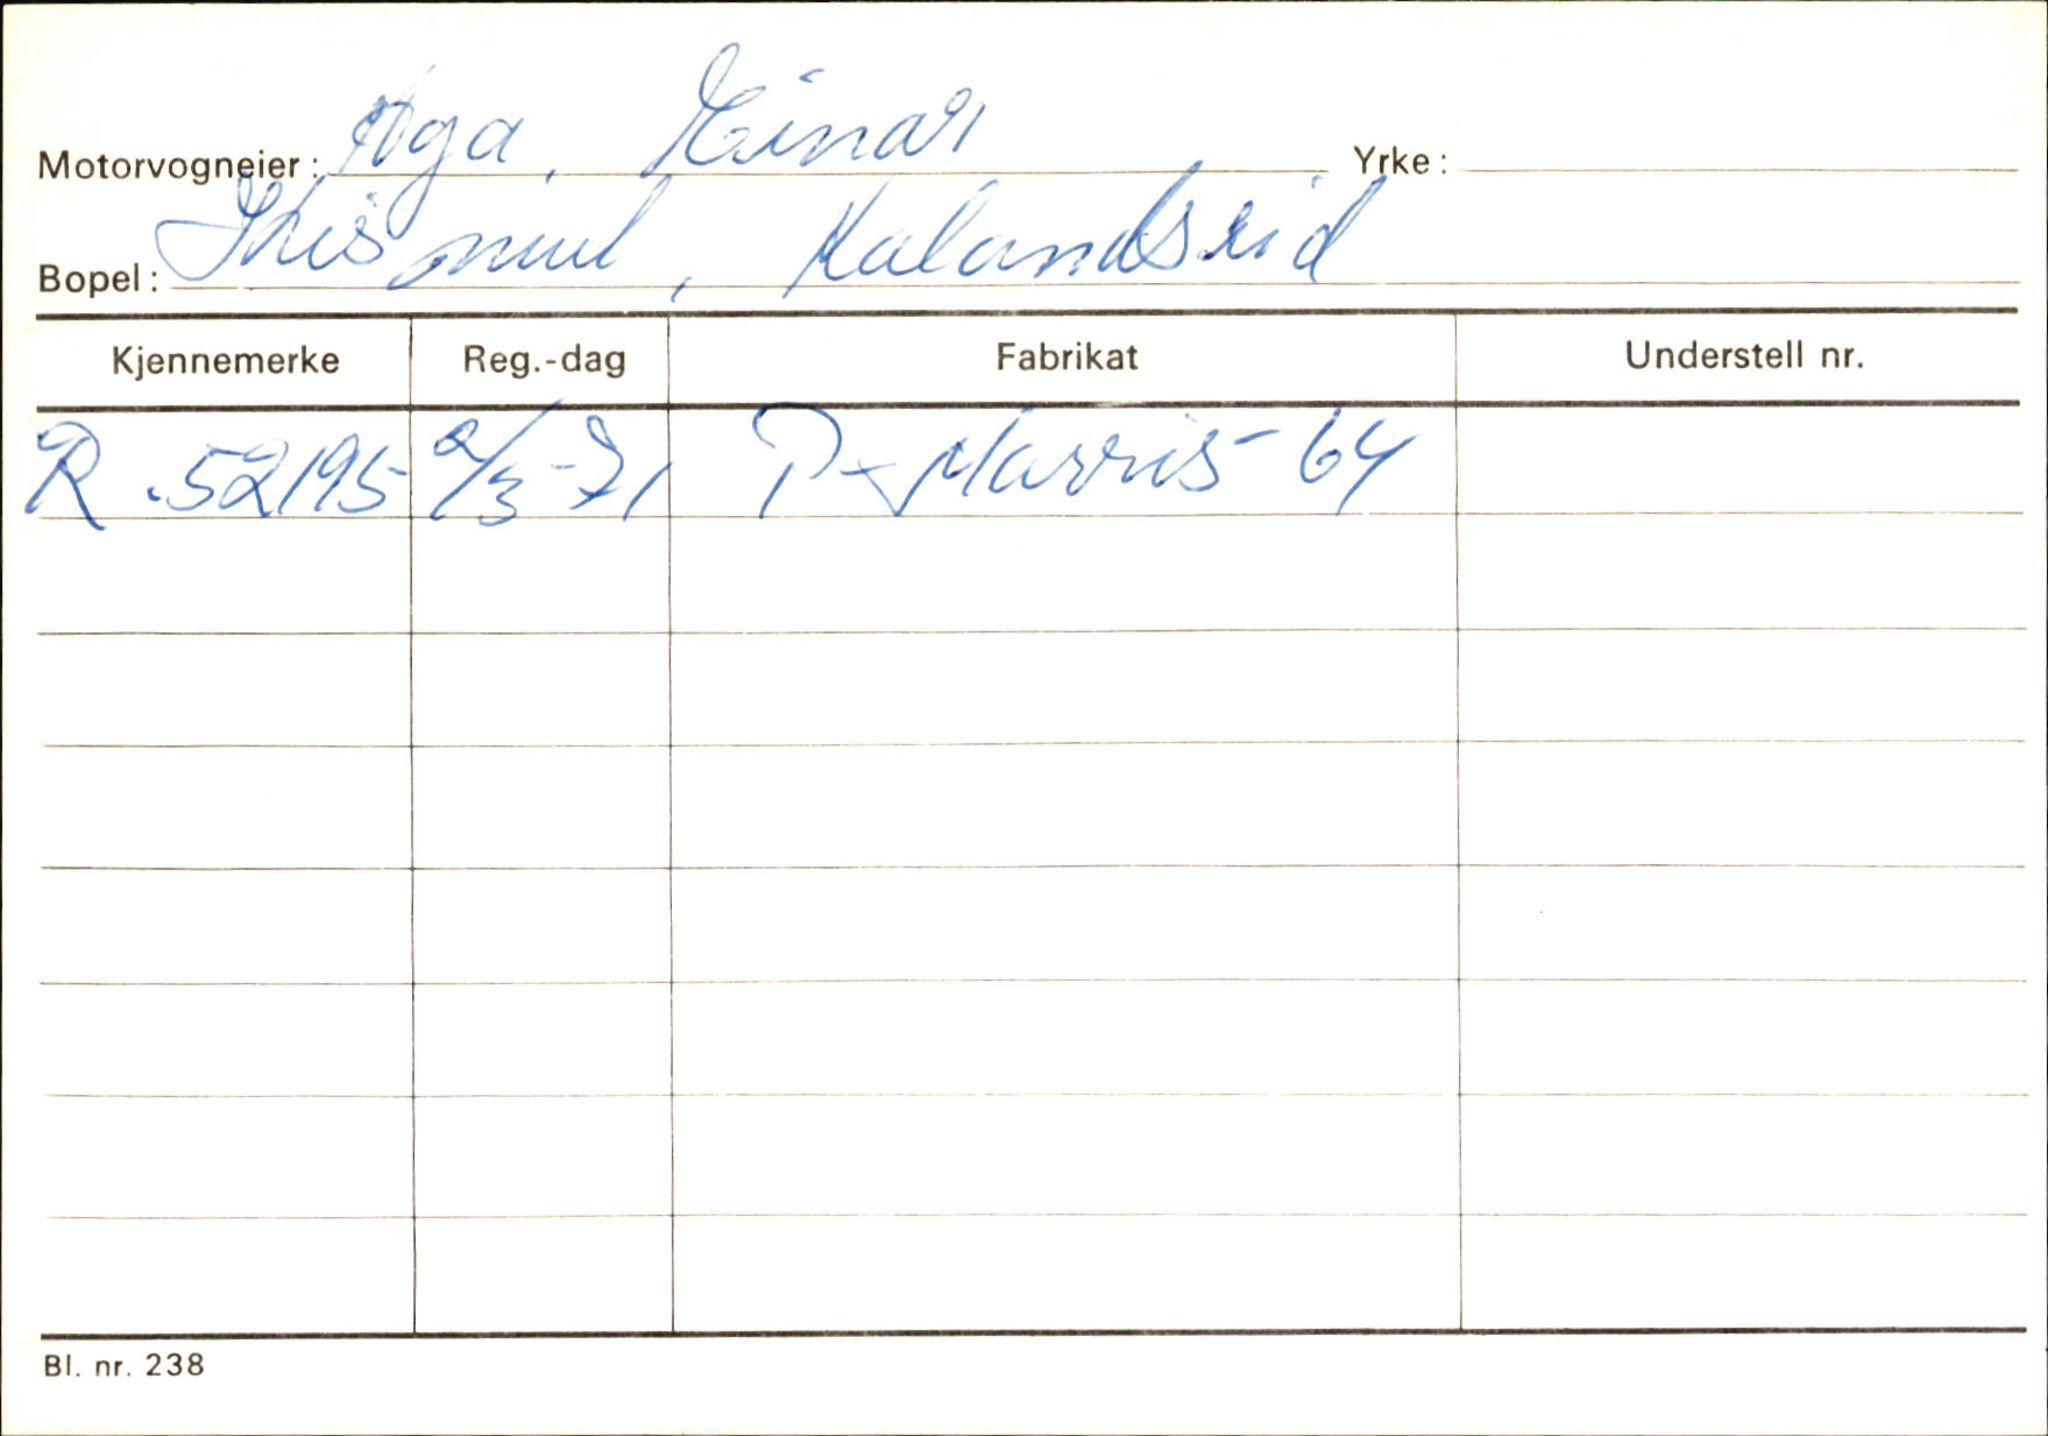 Motorvogneier: Aga, Einar Yrke:
Bopel: Kalandseid
Kjennemerke Reg.-dag Fabrikat Understell nr.
R.52195 2/3-71 P-Morris-64
Bl. nr. 238